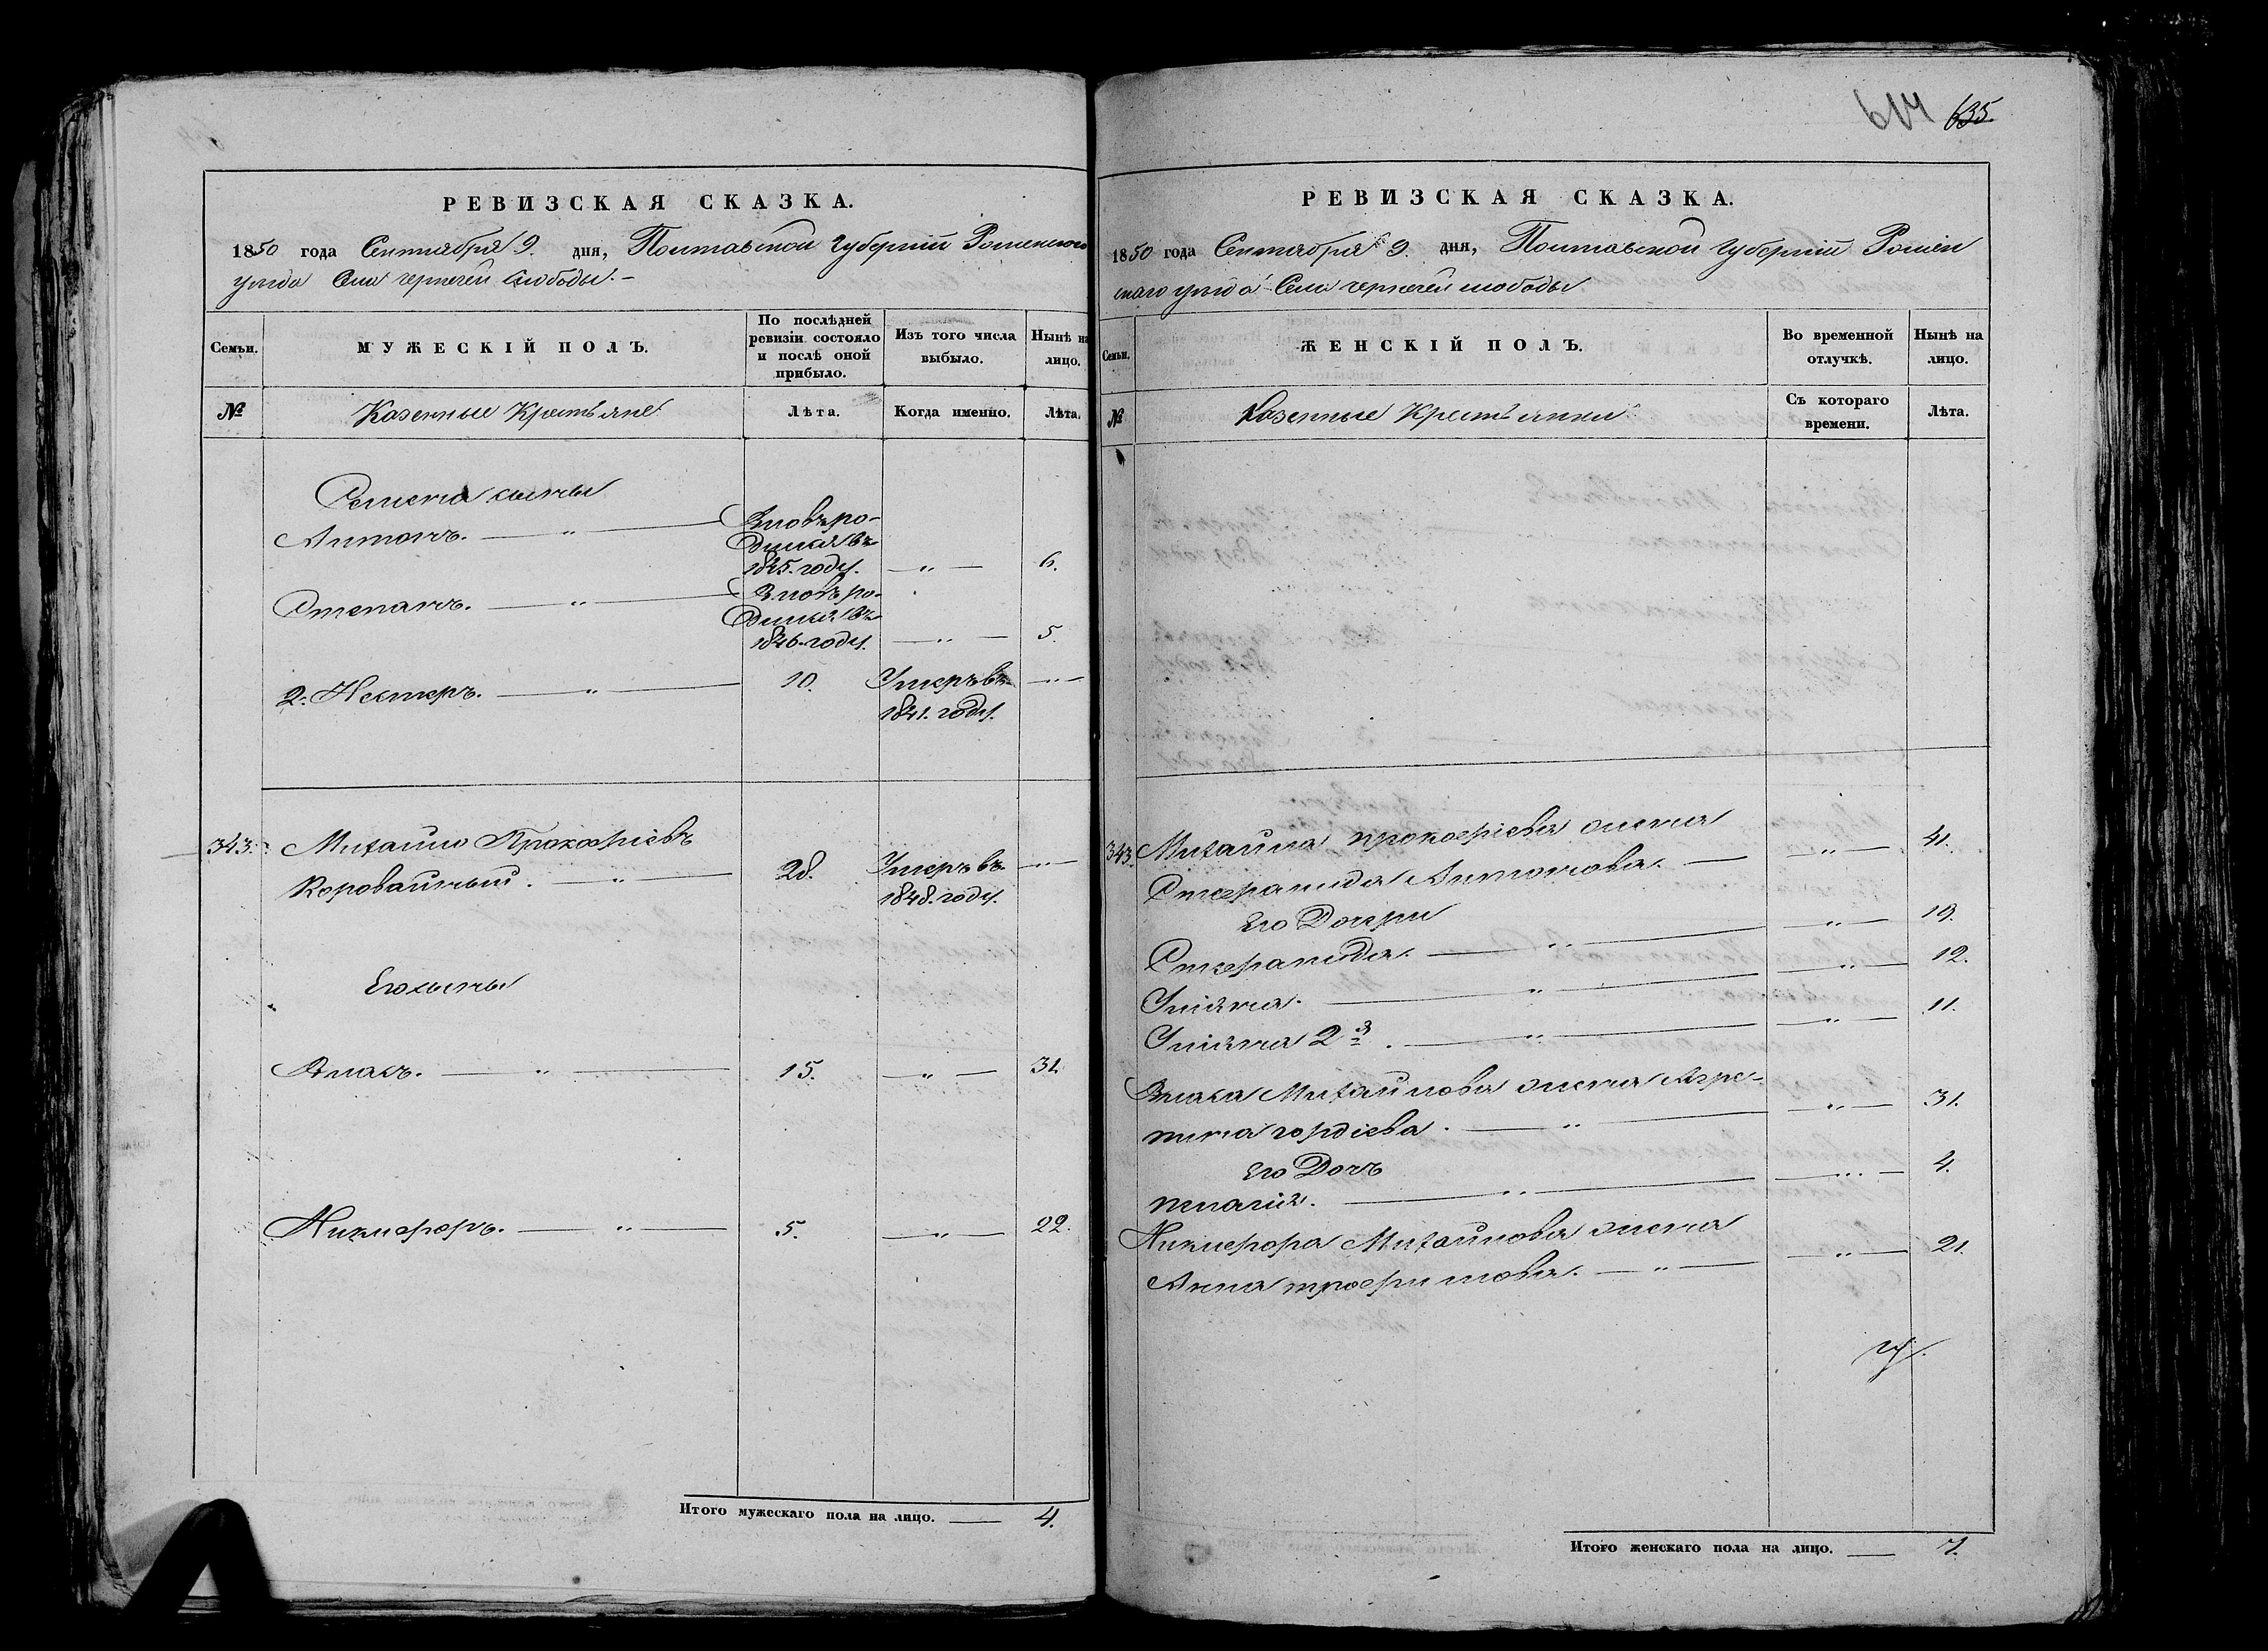 РЕВИЗСКАЯ СКАЗКА.
1850 года Сентября 9. дня, Полтавской Губерніи Роменскаго
уезда Села чернечей слободы. –
Семьи.
МУЖЕСКІЙ ПОЛЪ.
По послѣдней
ревизіи состояло
и послѣ оной
прибыло.
Изъ того числа
выбыло.
Нынѣ на
лицо.
№
Казенные Крестьяне
Лѣта.
Когда именно.
Лѣта.
Семена сыны
Антонъ. — " — Вновь ро-
дился въ
1845. году. — " — 6.
Степанъ. — " — Вновь ро-
дился въ
1846. году. — " — 5.
2. Нестеръ. — " — 10. Умеръ въ — " —
1841. году.
343. Михайло Прокофіевъ
Коровайный. — " — 28. Умеръ въ — " —
1848. году.
Его сыны
Власъ. — " — 15. — " — 31.
Никифоръ. — " — 5. — " — 22.
Итого мужескаго пола на лицо. — 4.
614 635.
РЕВИЗСКАЯ СКАЗКА.
1850 года Сентября 9. дня, Полтавской Губерніи Ромен
скаго уезда Села чернечей слободы
Семьи.
ЖЕНСКІЙ ПОЛЪ.
Во временной
отлучкѣ.
Нынѣ на
лицо.
№
Казенные Крестьянки
Съ котораго
времени.
Лѣта.
343. Михайла прокофіева жена — " — 41.
Стефанида Антонова. —
Его Дочери
Стефанида. — " — — " — 19.
Уліяна. — " — — " — 12.
Уліяна 2я. — " — — " — 11.
Власа Михайлова жена Агре-
пина гордіева. — " — — " — 31.
Его Дочь
пелагія. — " — — " — 4.
Никифора Михайлова жена
Анна трофимова. — " — — " — 21.
Итого женскаго пола на лицо. — 7.